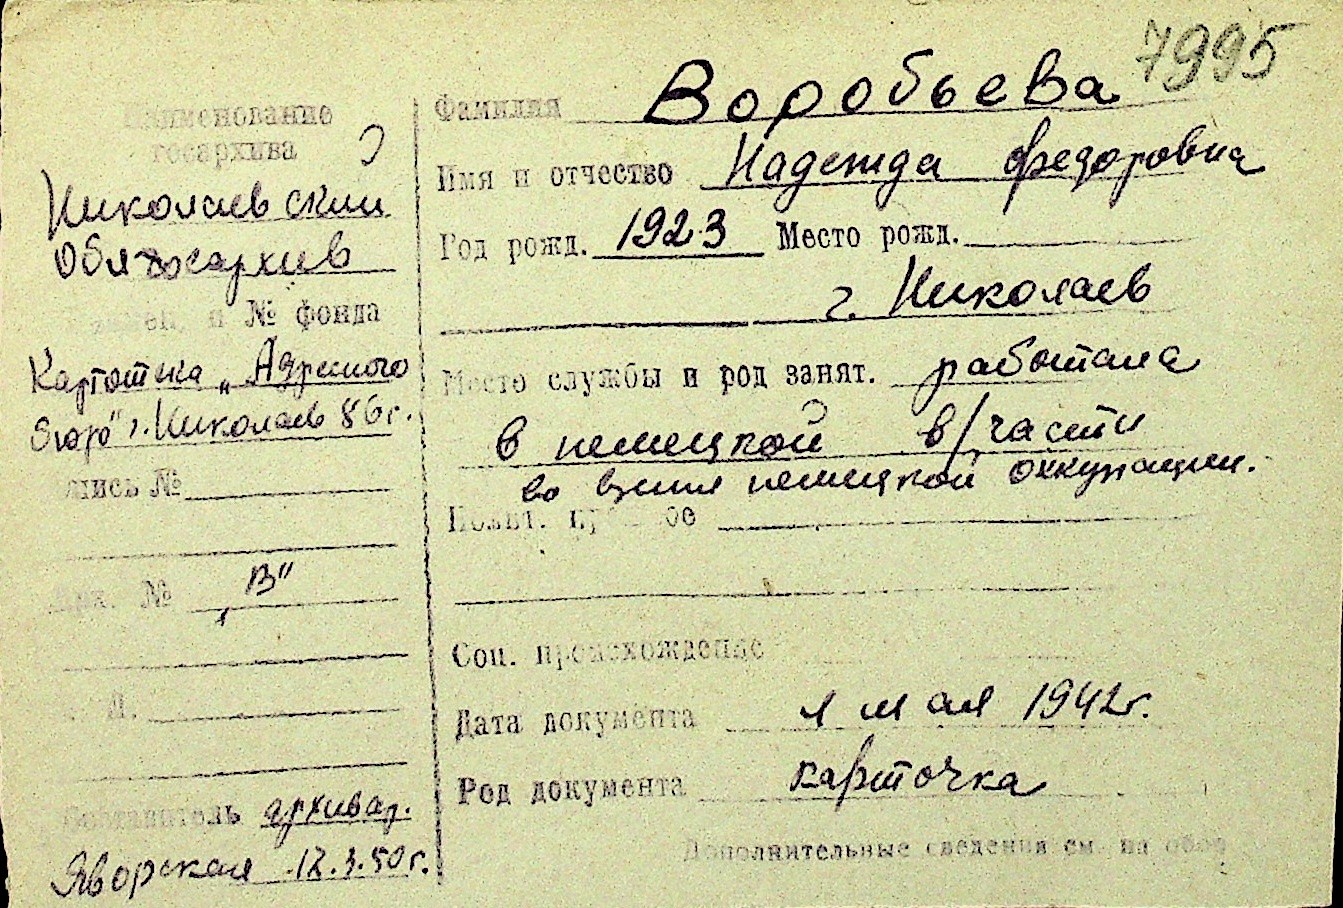 7995
Наименование
госархива
Николаевский
Облгосархив
№ фонда
Картотека „Адресного
бюро" г. Николаев
опись №
№ „В"
Л.
Составитель архивар.
Яворская 12.3.50 г.
Фамилия Воробьева
Имя и отчество Надежда Федоровна
Год рожд. 1923 Место рожд.
г. Николаев
Место службы и род занят. работала
в немецкой в/части
во время немецкой оккупации.
Полит. ое
Соц. происхождение
Дата документа 1 мая 1942г.
Род документа карточка
Дополнительные сведения см. на обор